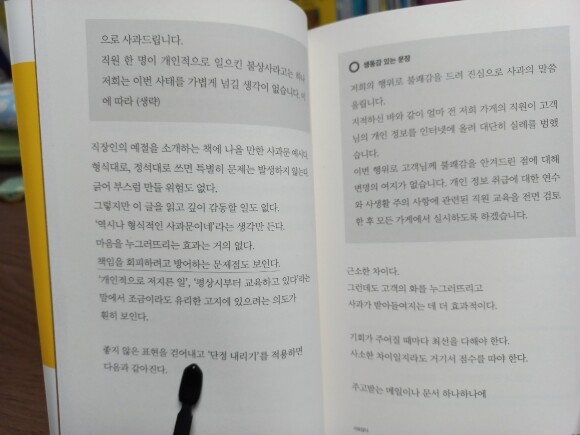 으로 사과드립니다.
직원 한 명이 개인적으로 일으킨 불상사라고는 하나
저희는 이번 사태를 가볍게 넘길 생각이 없습니다.
에 따라 (생략)
직장인의 예절을 소개하는 책에 나올 만한 사과문 예시다.
형식대로, 정석대로 쓰면 특별히 문제는 발생하지 않는다.
긁어 부스럼 만들 위험도 없다.
그렇지만 이 글을 읽고 깊이 감동할 일도 없다.
'역시나 형식적인 사과문이네'라는 생각만 든다.
마음을 누그러뜨리는 효과는 거의 없다.
책임을 회피하려고 방어하는 문제점도 보인다.
'개인적으로 저지른 일', '평상시부터 교육하고 있다'라는
말에서 조금이라도 유리한 고지에 있으려는 의도가
훤히 보인다.
좋지 않은 표현을 걷어내고 '단정 내리기'를 적용하면
다음과 같아진다.
생동감 있는 문장
저희의 행위로 불쾌감을 드려 진심으로 사과의 말씀
올립니다.
지적하신 바와 같이 얼마 전 저희 가게의 직원이 고객
님의 개인 정보를 인터넷에 올려 대단히 실례를 범했
습니다.
이번 행위로 고객님께 불쾌감을 안겨드린 점에 대해
변명의 여지가 없습니다. 개인 정보 취급에 대한 연수
와 사생활 주의 사항에 관련된 직원 교육을 전면 검토
한 후 모든 가게에서 실시하도록 하겠습니다.
근소한 차이다.
그런데도 고객의 화를 누그러뜨리고
사과가 받아들여지는 데 더 효과적이다.
기회가 주어질 때마다 최선을 다해야 한다.
사소한 차이일지라도 거기서 점수를 따야 한다.
주고받는 메일이나 문서 하나하나에